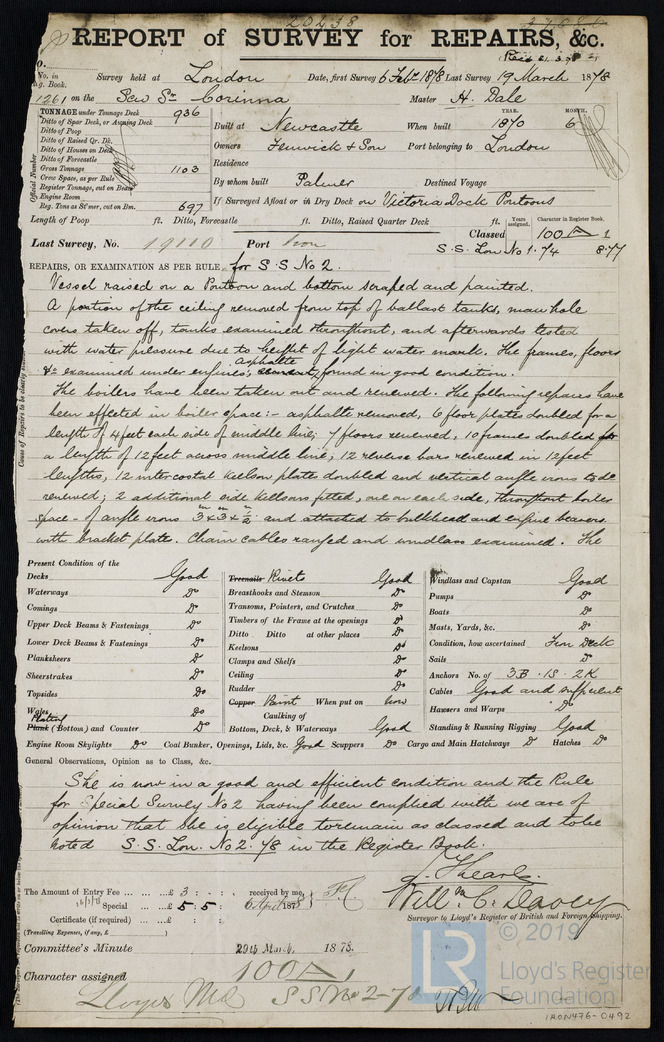 20238
REPORT of SURVEY for REPAIRS, &c.
No. in Reg. Book. Survey held at London Date, first Survey 6 Feb 1878 Last Survey 19 March 1878
1261 on the Scw Sr Corinna Master H. Dale
TONNAGE under Tonnage Deck 936
Ditto of Spar Deck, or Awning Deck
Ditto of Poop
Ditto of Raised Qr. Dk.
Ditto of Houses on Deck
Ditto of Forecastle
Gross Tonnage 1103
Crew Space, as per Rule
Register Tonnage, cut on Beam
Engine Room
Reg. Tons as St'mer, cut on Bm. 697
Official Number
YEAR. MONTH.
Built at Newcastle When built 1870 6
Owners Fenwick & Son Port belonging to London
Residence
By whom built Palmer Destined Voyage
If Surveyed Afloat or in Dry Dock on Victoria Dock Pontoons
Length of Poop ft. Ditto, Forecastle ft. Ditto, Raised Quarter Deck ft. Years assigned. Character in Register Book.
Last Survey, No. 19110 Port Lon Classed 100 A 1
S.S. Lon No 1. 74 8.77
REPAIRS, OR EXAMINATION AS PER RULE, for S.S No 2.
Vessel raised on a Pontoon and bottom scraped and painted.
A portion of the ceiling removed from top of ballast tanks, manhole
covers taken off, tanks examined throughout, and afterwards tested
with water pressure due to height of light water mark. The frames, floors
&c examined under engines, asphalte found in good condition.
The boilers have been taken out and renewed. The following repairs have
been effected in boiler space:- asphalte removed, 6 floor plates doubled for a
length of 4 feet each side of middle line; 7 floors renewed, 10 frames doubled for
a length of 12 feet across middle line; 12 reverse bars renewed in 12 feet
lengths, 12 intercostal keelson plates doubled and vertical angle irons to do
renewed; 2 additional side keelsons fitted, one on each side, throughout boiler
space - of angle irons 3 x 3 x 1/2 and attached to bulkhead and engine bearers
with bracket plate. Chain cables ranged and windlass examined. The
Present Condition of the
Decks Good
Waterways Do
Comings Do
Upper Deck Beams & Fastenings Do
Lower Deck Beams & Fastenings Do
Planksheers Do
Sheerstrakes Do
Topsides Do
Wales Do
Plating
Plank (Bottom) and Counter Do
Treenails Rivets Good
Breasthooks and Stemson Do
Transoms, Pointers, and Crutches Do
Timbers of the Frame at the openings Do
Ditto Ditto at other places Do
Keelsons Do
Clamps and Shelfs Do
Ceiling Do
Rudder Do
Copper Paint When put on now
Caulking of
Bottom, Deck, & Waterways Good
Windlass and Capstan Good
Pumps Do
Boats Do
Masts, Yards, &c. Do
Condition, how ascertained From Deck
Sails Do
Anchors No. of 3B. 1S. 2K
Cables Good and sufficient
Hawsers and Warps Do
Standing & Running Rigging Good
Engine Room Skylights Do Coal Bunker, Openings, Lids, &c. Good Scuppers Do Cargo and Main Hatchways Do Hatches Do
General Observations, Opinion as to Class, &c.
She is now in a good and efficient condition and the Rule
for Special Survey No 2 having been complied with we are of
opinion that she is eligible to remain as classed and to be
noted S.S. Lon. No 2. 78 in the Register Book.
The Amount of Entry Fee £ 3 : : received by me,
Special £ 5 5 : 6 April 1878
Certificate (if required) £ : :
(Travelling Expenses, if any, £ )
Willm C. Davey
Surveyor to Lloyd's Register of British and Foreign Shipping.
Committee's Minute 29th March, 1878.
Character assigned 100 A 1
Lloyds MC SS No 2-78
LR
© 2019
Lloyd's Register
Foundation
IRON476-0492